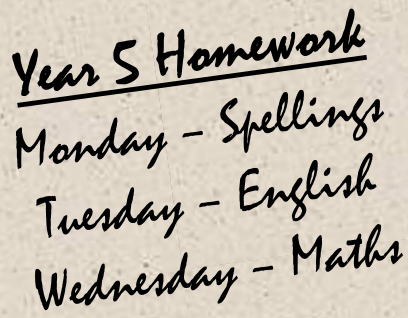 Year 5 Homework
Monday – Spellings
Tuesday – English
Wednesday – Maths